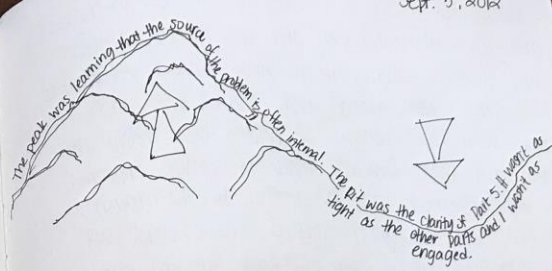 Sept. 5, 2012
The peak was learning that the source of the problem is often internal. The pit was the clarity of Part 5. It wasn't as
tight as the other parts and I wasn't as
engaged.